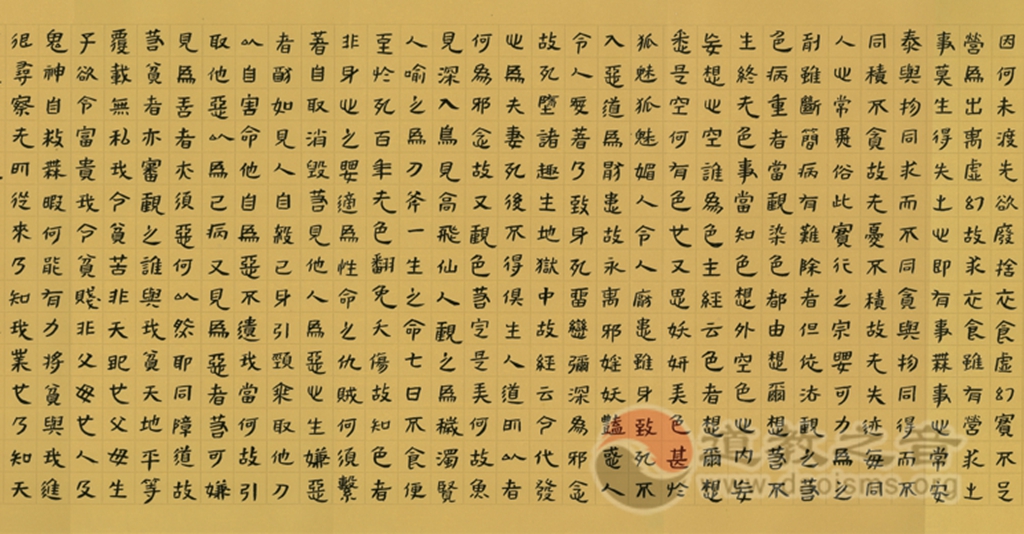 因何未渡先欲廢捨衣食虛幻實不足
營為出离虛幻故求衣食雖有營求之
事莫生得失之心即有事無事心常安
泰與物同求而不同貪與物同得而不
同積不貪故无憂不積故无失迹每同
人心常異俗此實行之宗要可力為之
前雖斷簡病有難除者但依法觀之若
色病重者當觀染色都由想爾想若不
生終无色事當知色想外空色心內妄
妄想心空誰為色主經云色者想爾想
悉是空何有色也又思妖妍美色甚於
狐魅狐魅媚人令人厭患雖身致死不
入惡道為厭患故永离邪婬妖豔惑人
令人愛著乃致身死留戀彌深為邪念
故死墮諸趣生地獄中故經云今代發
心為夫妻死後不得俱生人道所以者
何為邪念故又觀色若定是美何故魚
見深入鳥見高飛仙人觀之為穢濁賢
人喻之為刀斧一生之命七日不食便
至於死百年无色翻免夭傷故知色者
非身心之要適為性命之仇賊何須繫
著自取消毀若見他人為惡心生嫌惡
者酣如見人自殺己身引頸乘取他刀
以自害命他自為惡不遣我當何故引
取他惡以為己病又見為惡者若可嫌
見為善者夾須惡何以然耶同障道故
若貧者亦審觀之誰與我貧天地平等
覆載無私我今貧苦非天地也父母生
子欲令富貴我今貧賤非父母也人及
鬼神自救無暇何能有力將貧與我進
退尋察无所從來乃知我業也乃知天
道教之音
www.daoisms.org